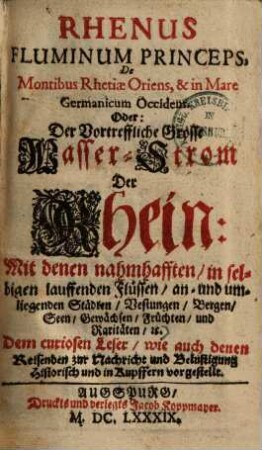 RHENUS
FLUMINUM PRINCEPS,
De
Montibus Rhetiæ Oriens, & in Mare
Germanicum Occidens.
Oder:
Der Vortreffliche Grosse
Wasser-Strom
Der
Rhein:
Mit denen nahmhafften/ in sel-
bigen lauffenden Flüssen/ an- und um-
liegenden Städten/ Vestungen/ Bergen/
Seen/ Gewächsen/ Früchten/ und
Raritäten/ ꝛc.
Dem curiosen Leser/ wie auch denen
Reisenden zur Nachricht und Belustigung
Historisch und in Kupffern vorgestellt.
AUGSPURG/
Druckts und verlegts Jacob Koppmayer.
M. DC. LXXXIX.